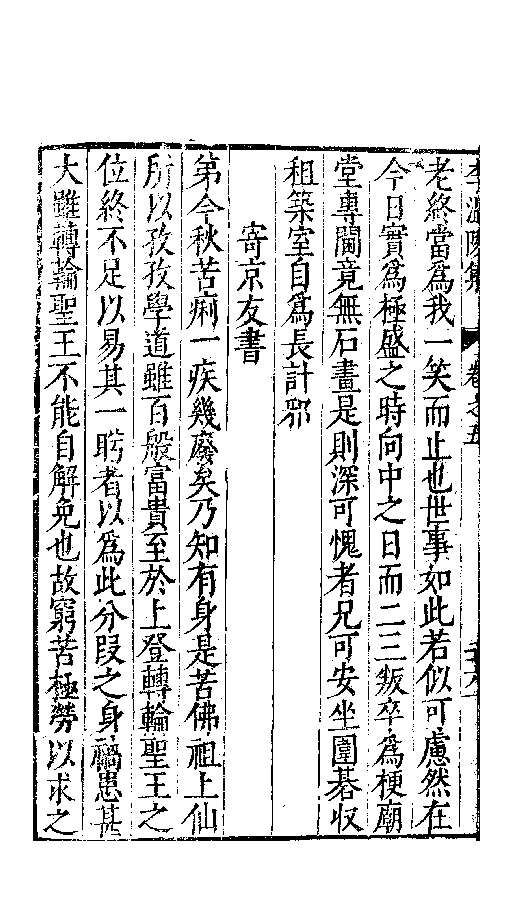 李溫陵集 卷之五
老終當為我一笑而止也世事如此若似可慮然在
今日實為極盛之時向中之日而二三叛卒為梗廟
堂專閫竟無石畫是則深可愧者兄可安坐圍碁收
租築室自為長計邪
寄京友書
第今秋苦痢一疾幾廢矣乃知有身是苦佛祖上仙
所以孜孜學道雖百般富貴至於上登轉輪聖王之
位終不足以易其一盻者以為此分段之身禍患甚
大雖轉輪聖王不能自解免也故窮苦極勞以求之